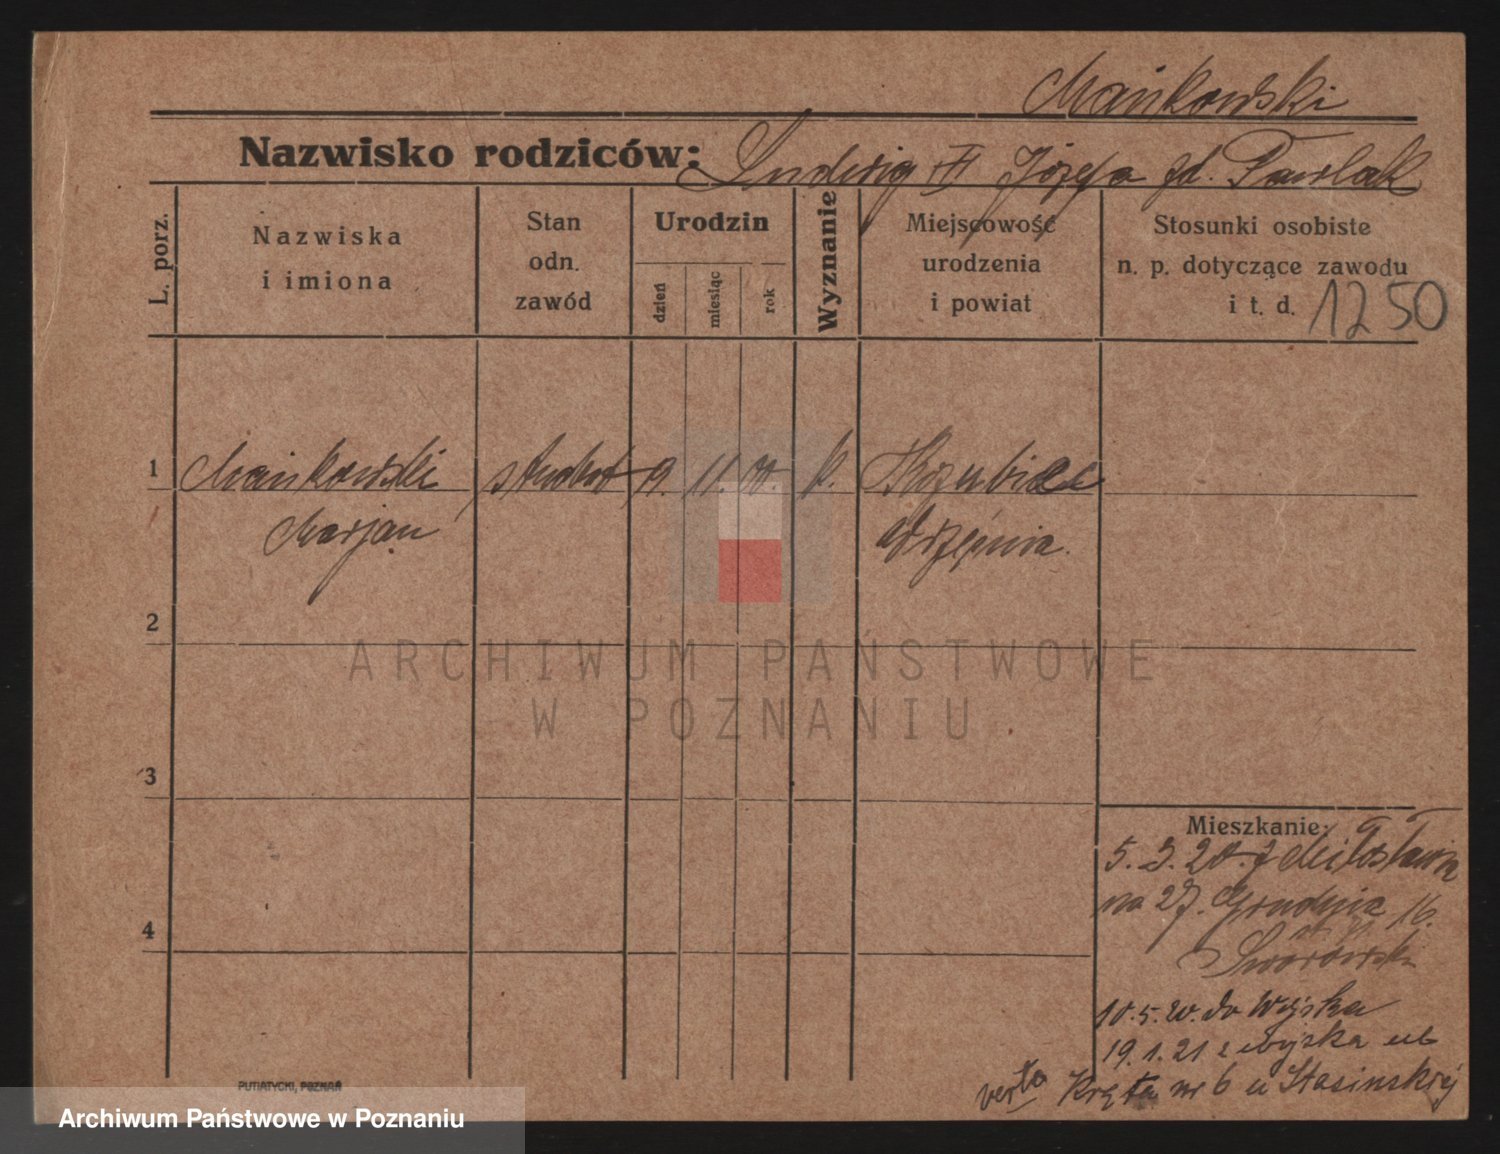 Mańkowski
Nazwisko rodziców: Ludwig II Józefa zd. Pawlak
L. porz.
Nazwiska
i imiona
Stan
odn.
zawód
Urodzin
dzień
miesiąc
rok
Wyznanie
Miejscowość
urodzenia
i powiat
Stosunki osobiste
n. p. dotyczące zawodu
i t. d. 1250
1 Mańkowski student 9. 11. 00. k.
Marjan Września.
2
ARCHIWUM PAŃSTWOWE
W POZNANIU
3
4
Mieszkanie:
5.3.20. z Miłosławia
na 27. Grudnia 16.
Sworowski
10.5.20. do Wojska
19.1.21 z wojska ul.
verta Kręta nr 6 u Stasinskiej
PUTIATYCKI, POZNAŃ
Archiwum Państwowe w Poznaniu